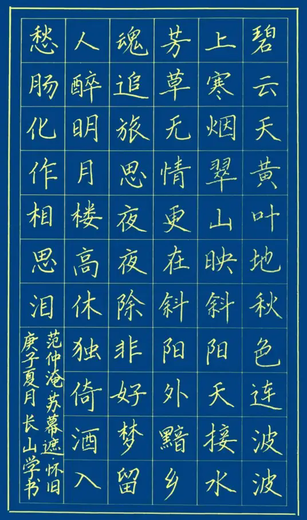 碧云天黄叶地秋色连波波
上寒烟翠山映斜阳天接水
芳草无情更在斜阳外黯乡
魂追旅思夜夜除非好梦留
人醉明月楼高休独倚酒入
愁肠化作相思泪
范仲淹苏幕遮·怀旧
庚子夏月长山学书